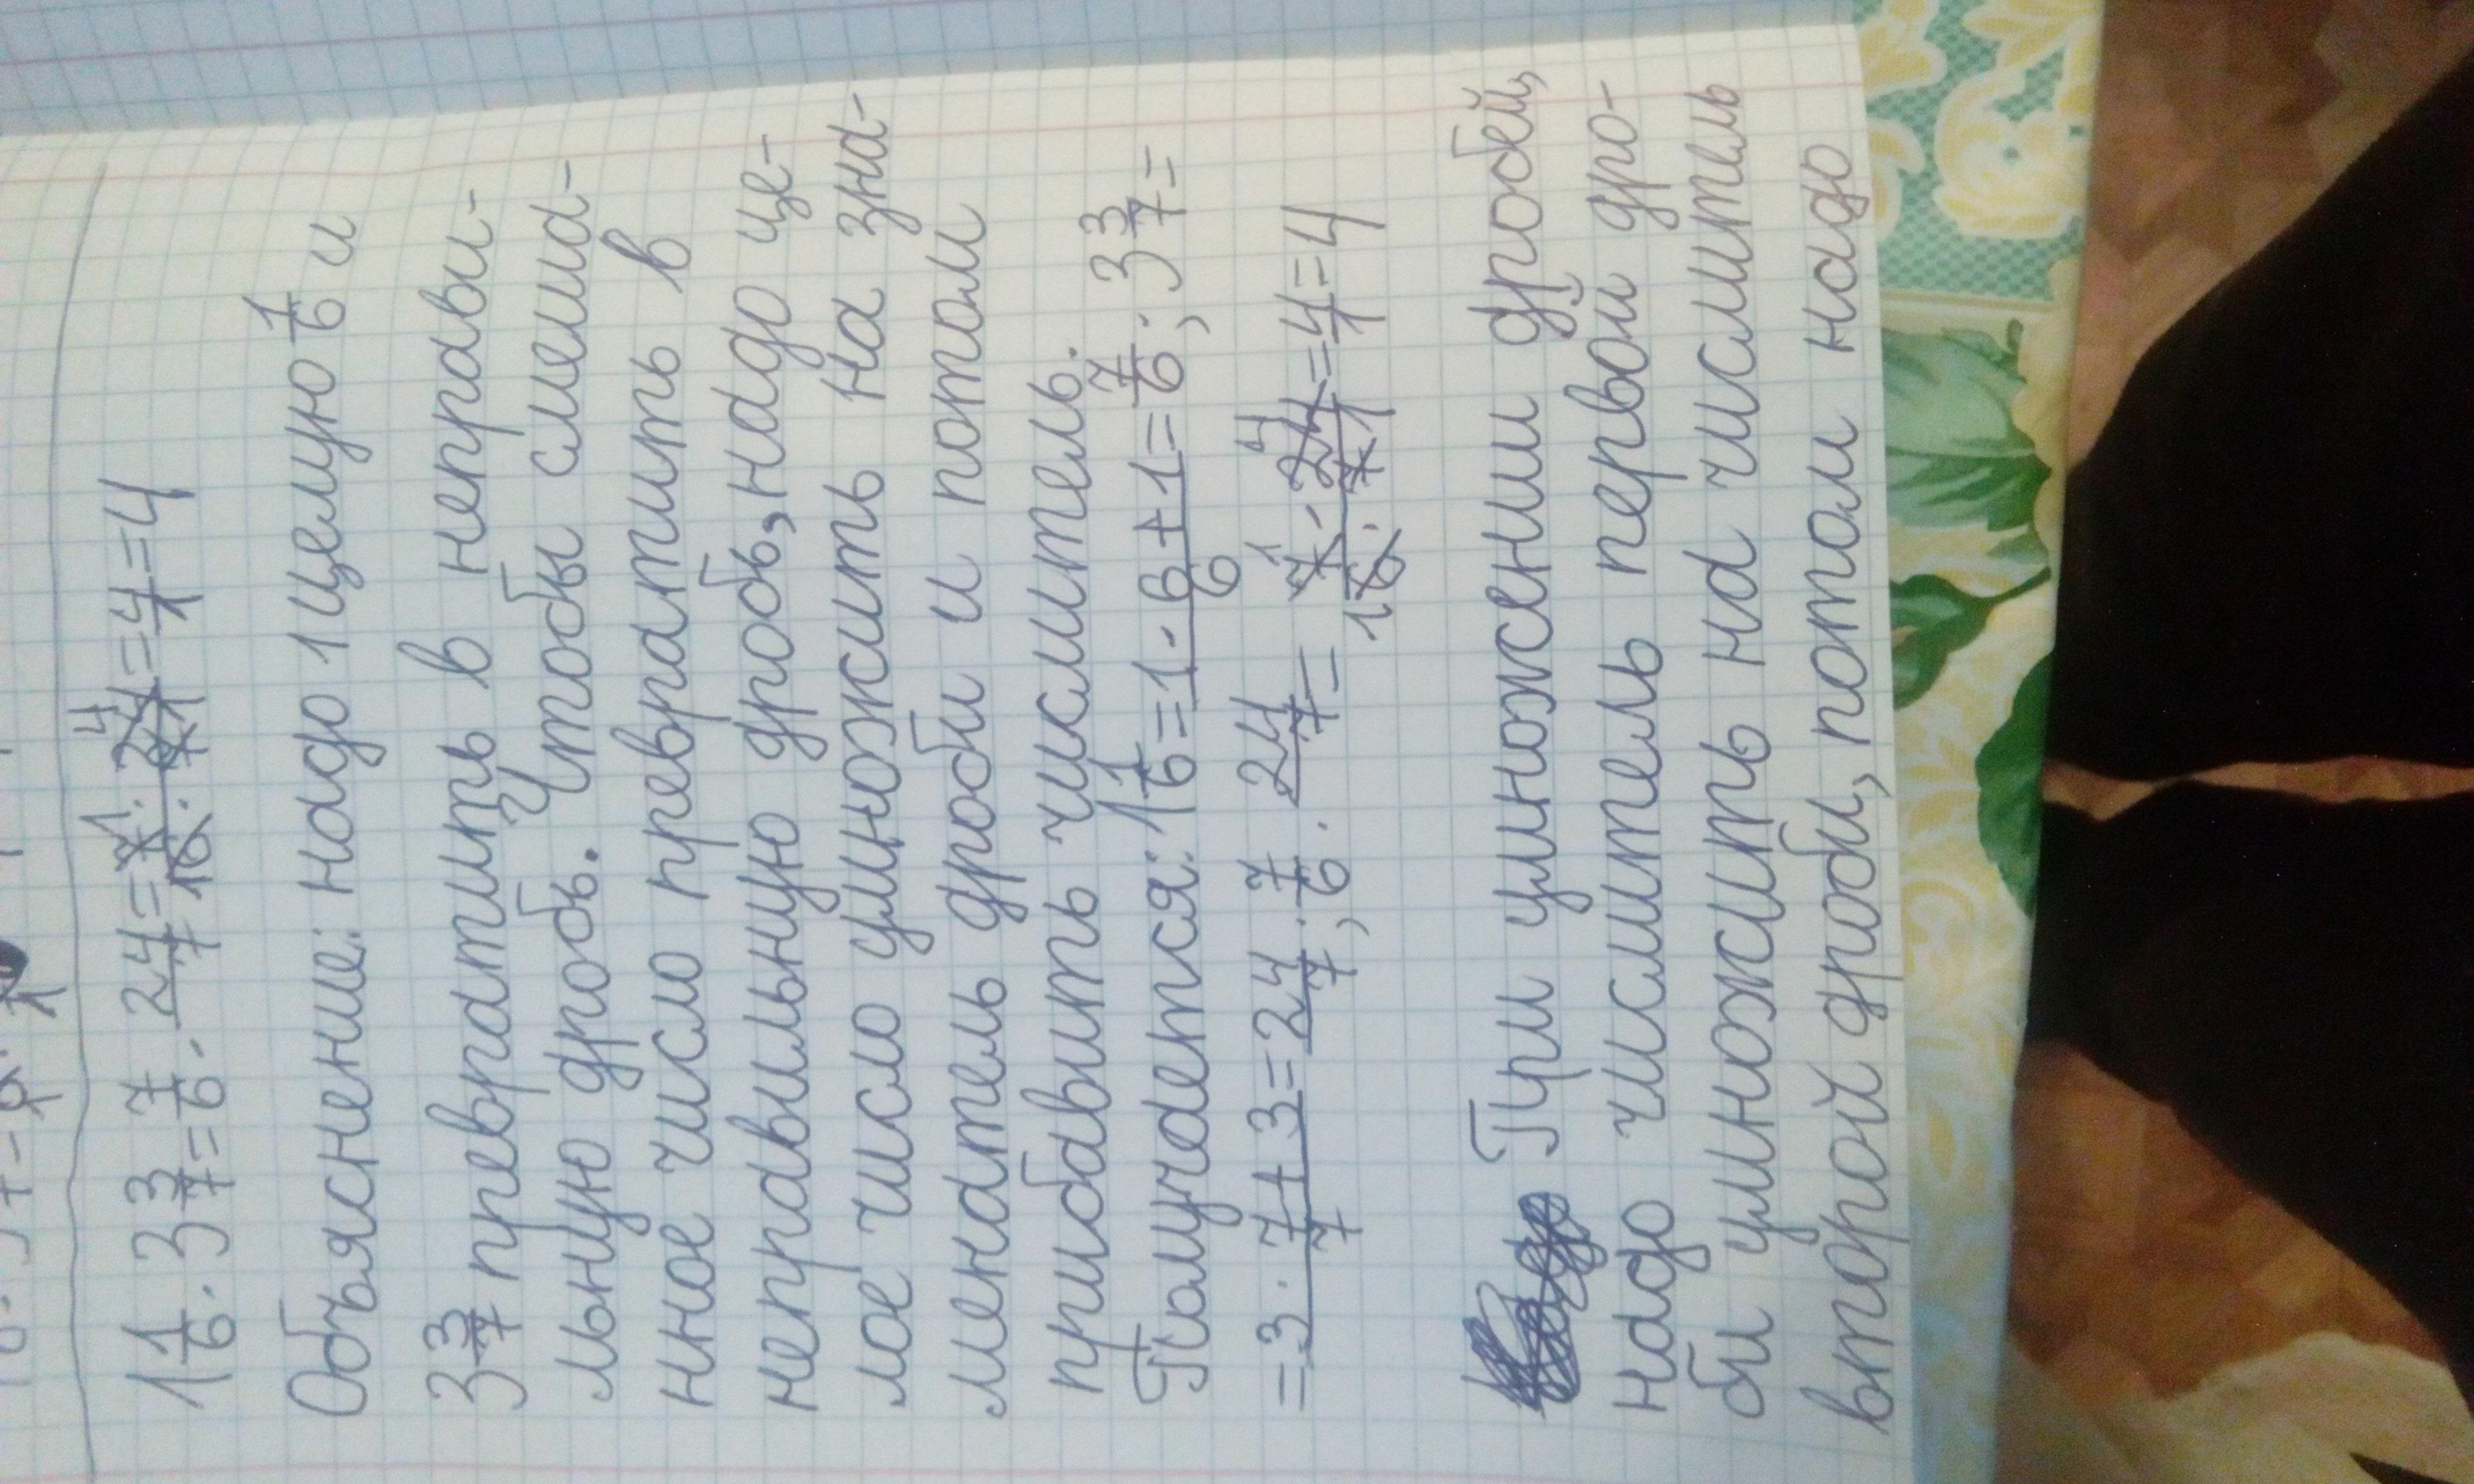 1 1/6 · 3 3/7 = 7/6 · 24/7 = 7 1 · 24 4 / 1 6 · 7 1 = 4/1 = 4
Объяснение: надо 1 целую 1/6 и
3 3/7 превратить в неправи-
льную дробь. Чтобы смеша-
нное число превратить в
неправильную дробь, надо це-
лое число умножить на зна-
менатель дроби и потом
прибавить числитель.
Получается: 1 1/6 = 1 · 6 + 1 / 6 = 7/6; 3 3/7 =
= 3 · 7 + 3 / 7 = 24/7; 7/6 · 24/7 = 7 1 · 24 4 / 1 6 · 7 1 = 4/1 = 4
При умножении дробей,
надо числитель первой дро-
би умножить на числитель
второй дроби, потом надо